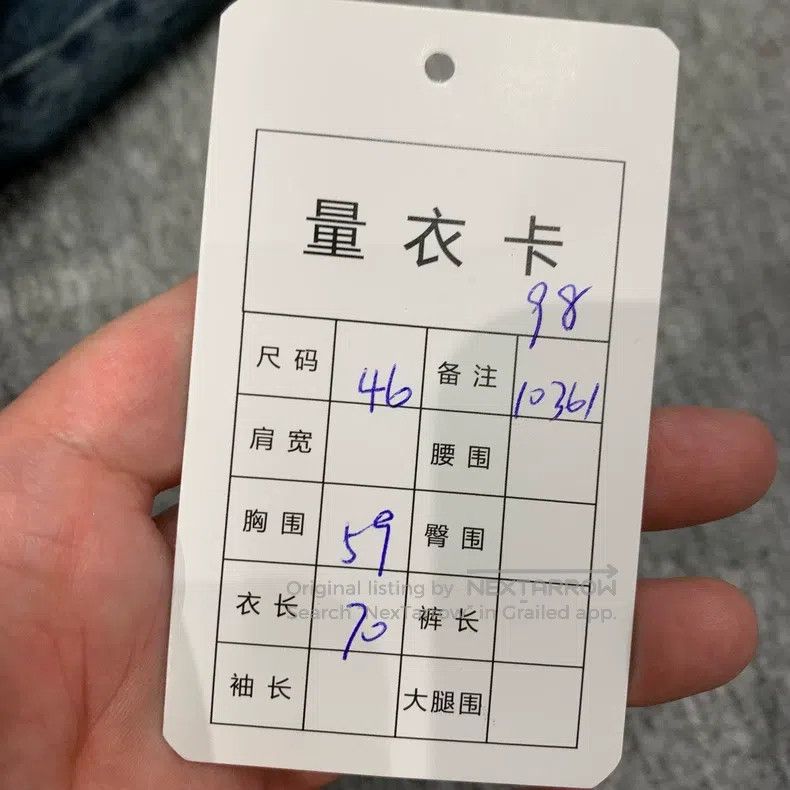 量衣卡
98
尺码 46 备注 10361
肩宽 腰围
胸围 59 臀围
衣长 70 裤长
袖长 大腿围
Original listing by NEXTARROW
Search "NexTarrow" in Grailed app.